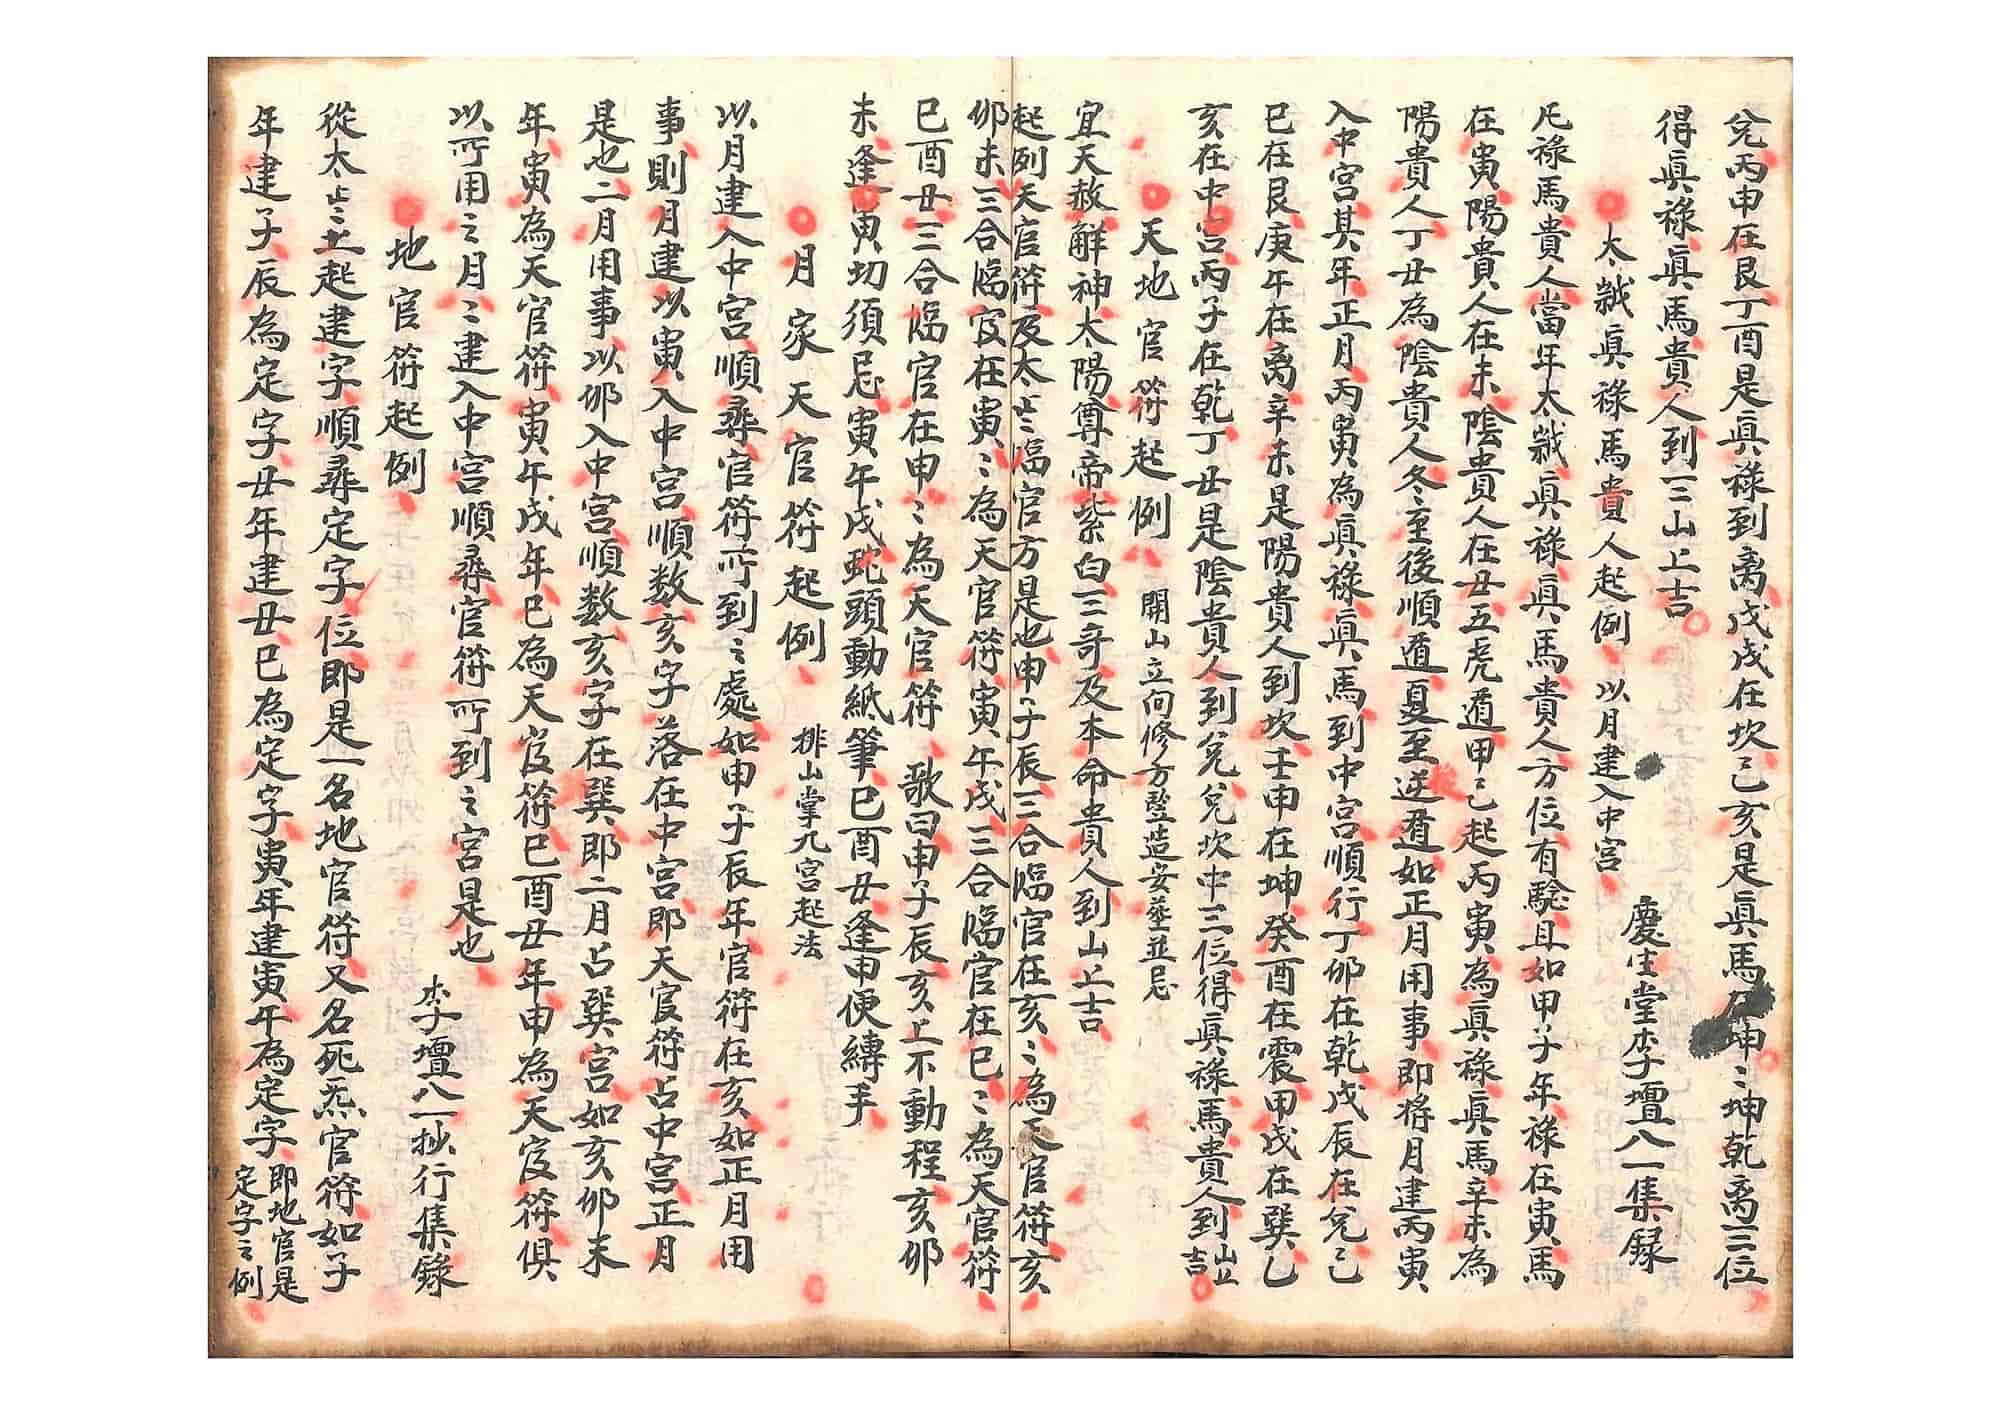 兌丙申在艮丁酉是眞祿到离戊戌在坎己亥是眞馬乃坤〻坤乾离三位
得眞祿眞馬貴人到三山上吉
太歲眞祿馬貴人起例 以月建入中宮
慶生堂李壇八一集録
凡祿馬貴人當年太歲眞祿眞馬貴人方位有驗且如甲子年祿在寅馬
在寅陽貴人在未陰貴人在丑五虎遁甲己起丙寅為眞祿眞馬辛未為
陽貴人丁丑為陰貴人冬至後順遁夏至逆遁如正月用事即將月建丙寅
入中宮其年正月丙寅為眞祿眞馬到中宮順行丁卯在乾戊辰在兌己
巳在艮庚午在离辛未是陽貴人到坎壬申在坤癸酉在震甲戌在巽乙
亥在中宮丙子在乾丁丑是陰貴人到兌兌坎中三位得眞祿馬貴人到山上吉
天地官符起例 開山立向修方竪造安葬並忌
宜天赦解神太陽尊帝紫白三奇及本命貴人到山上吉
起列天官符及太歲臨官方是也申子辰三合臨官在亥〻為天官符亥
卯未三合臨官在寅〻為天官符寅午戌三合臨官在巳〻為天官符
巳酉丑三合臨官在申〻為天官符 歌曰申子辰亥上不動程亥卯
未逢寅切須忌寅午戌蛇頭動紙筆巳酉丑逢申便縳手
月家天官符起例 排山掌九宮起法
以月建入中宮順尋官符所到之處如申子辰年官符在亥如正月用
事則月建以寅入中宮順数亥字落在中宮即天官符占中宮正月
是也二月用事以卯入中宮順数亥字在巽即二月占巽宮如亥卯未
年寅為天官符寅午戌年巳為天官符巳酉丑年申為天官符俱
以所用之月〻建入中宮順尋官符所到之宮是也
地官符起例
李壇八一抄行集録
從太歲上起建字順尋定字位即是一名地官符又名死炁官符如子
年建子辰為定字丑年建丑巳為定字寅年建寅午為定字即地官是定字之例